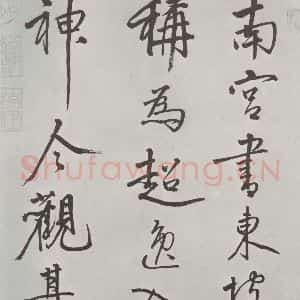 南宮書東坡
稱為超逸入
神今觀其
Shufawang.CN